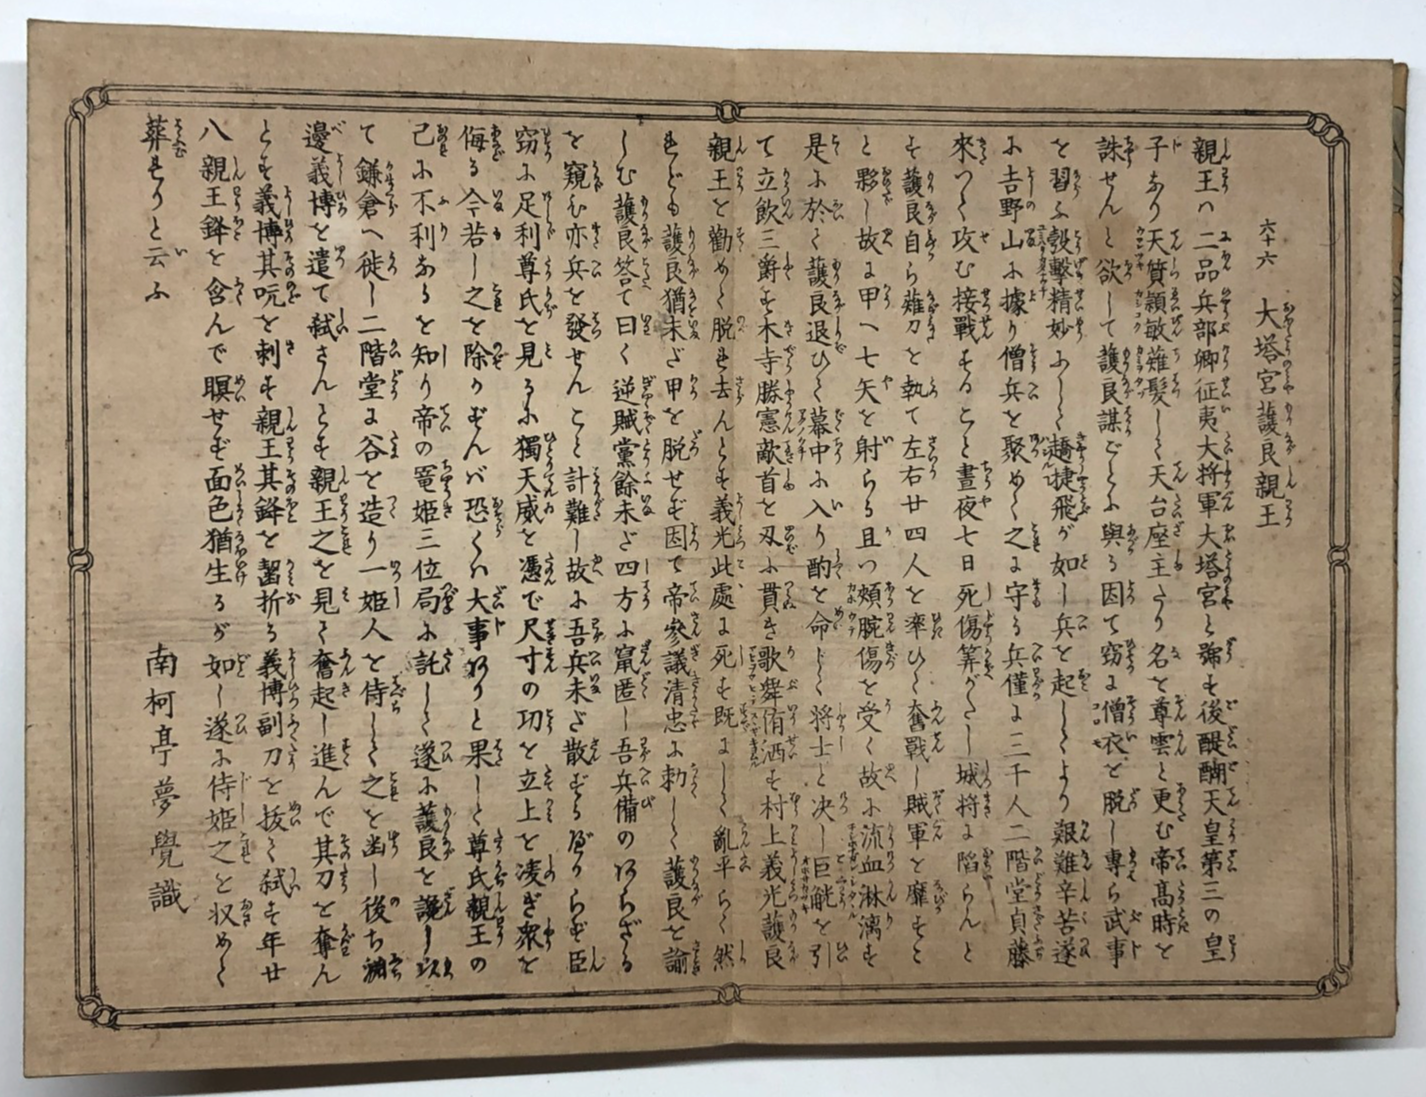 六十六 大塔宮護良親王
親王ハ二品兵部卿征夷大将軍大塔宮と號も後醍醐天皇第三の皇
子なり天質頴敏薙髪して天台座主たり名を尊雲と更む帝高時を
誅せんと欲して護良謀ごとに與る因て窃に僧衣を脱し専ら武事
を習ふ撃精妙にして趫捷飛が如し兵を起しより艱難辛苦遂
に吉野山に據り僧兵を聚めて之に守る兵僅に三千人二階堂貞藤
來つて攻む接戰すること晝夜七日死傷筭がたし城将に陷らんと
す護良自ら薙刀を執て左右廿四人を率ひて奮戰し賊軍を靡すこ
と夥し故に甲へ七矢を射らる且つ頰腕傷を受く故に流血淋漓す
是に於て護良退ひて幕中に入り酌を命じて将士と决し巨觥を引
て立飲三爵す木寺勝憲敵首を刄に貫き歌舞侑洒す村上義光護良
親王を勸めて脱れ去んとす義光此處に死す既にして亂平らく然
れども護良猶未ダ甲を脱せず因て帝參議清忠に勅して護良を諭
しむ護良答て曰く逆賊黨餘未ダ四方に竄匿し吾兵備のあらざる
を窺ひ亦兵を發せんこと計難し故に吾兵未ダ散ずらからず臣
窃に足利尊氏を見るに獨天威を憑で尺寸の功を立上を凌ぎ衆を
侮る今若し之を除かずんバ恐くハ大事ありと果して尊氏親王の
己に不利なるを知り帝の寵姫三位局に託して遂に護良を讒し以
て鎌倉へ徒し二階堂に谷を造り一姫人を侍して之を幽し後ち渕
邊義博を遣て弑さんとす親王之を見て奮起し進んで其刀を奪ん
とす義博其吭を刺す親王其鋒を齧折る義博副刀を抜て弑す年廿
八親王鋒を含んで瞑せず面色猶生るが如し遂に侍姫之を収めて
葬れりと云ふ
南柯亭夢覺識